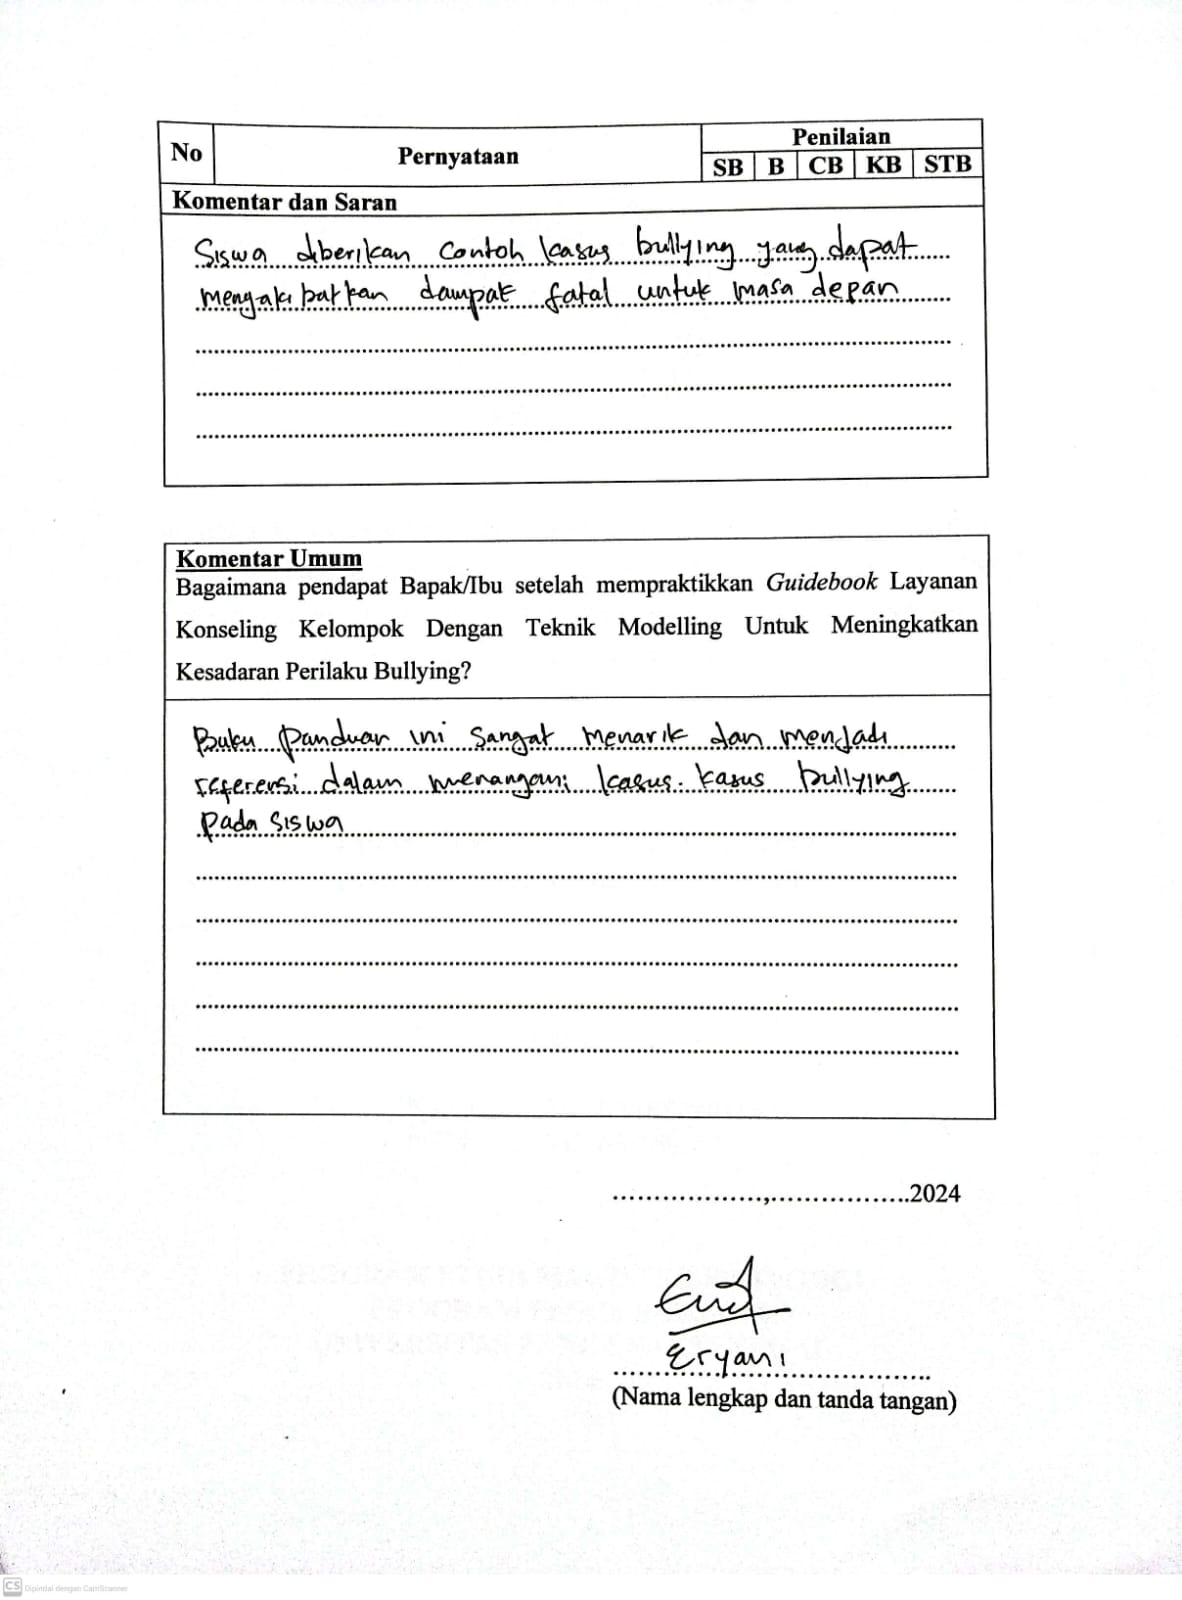 No Pernyataan Penilaian
SB B CB KB STB
Komentar dan Saran
Siswa diberikan contoh kasus bullying yang dapat
mengakibatkan dampak fatal untuk masa depan
Komentar Umum
Bagaimana pendapat Bapak/Ibu setelah mempraktikkan Guidebook Layanan
Konseling Kelompok Dengan Teknik Modelling Untuk Meningkatkan
Kesadaran Perilaku Bullying?
Buku panduan ini sangat menarik dan menjadi
referensi dalam menangani kasus-kasus bullying
pada siswa
....................,..................2024
Eryani
(Nama lengkap dan tanda tangan)
CS Dipindai dengan CamScanner